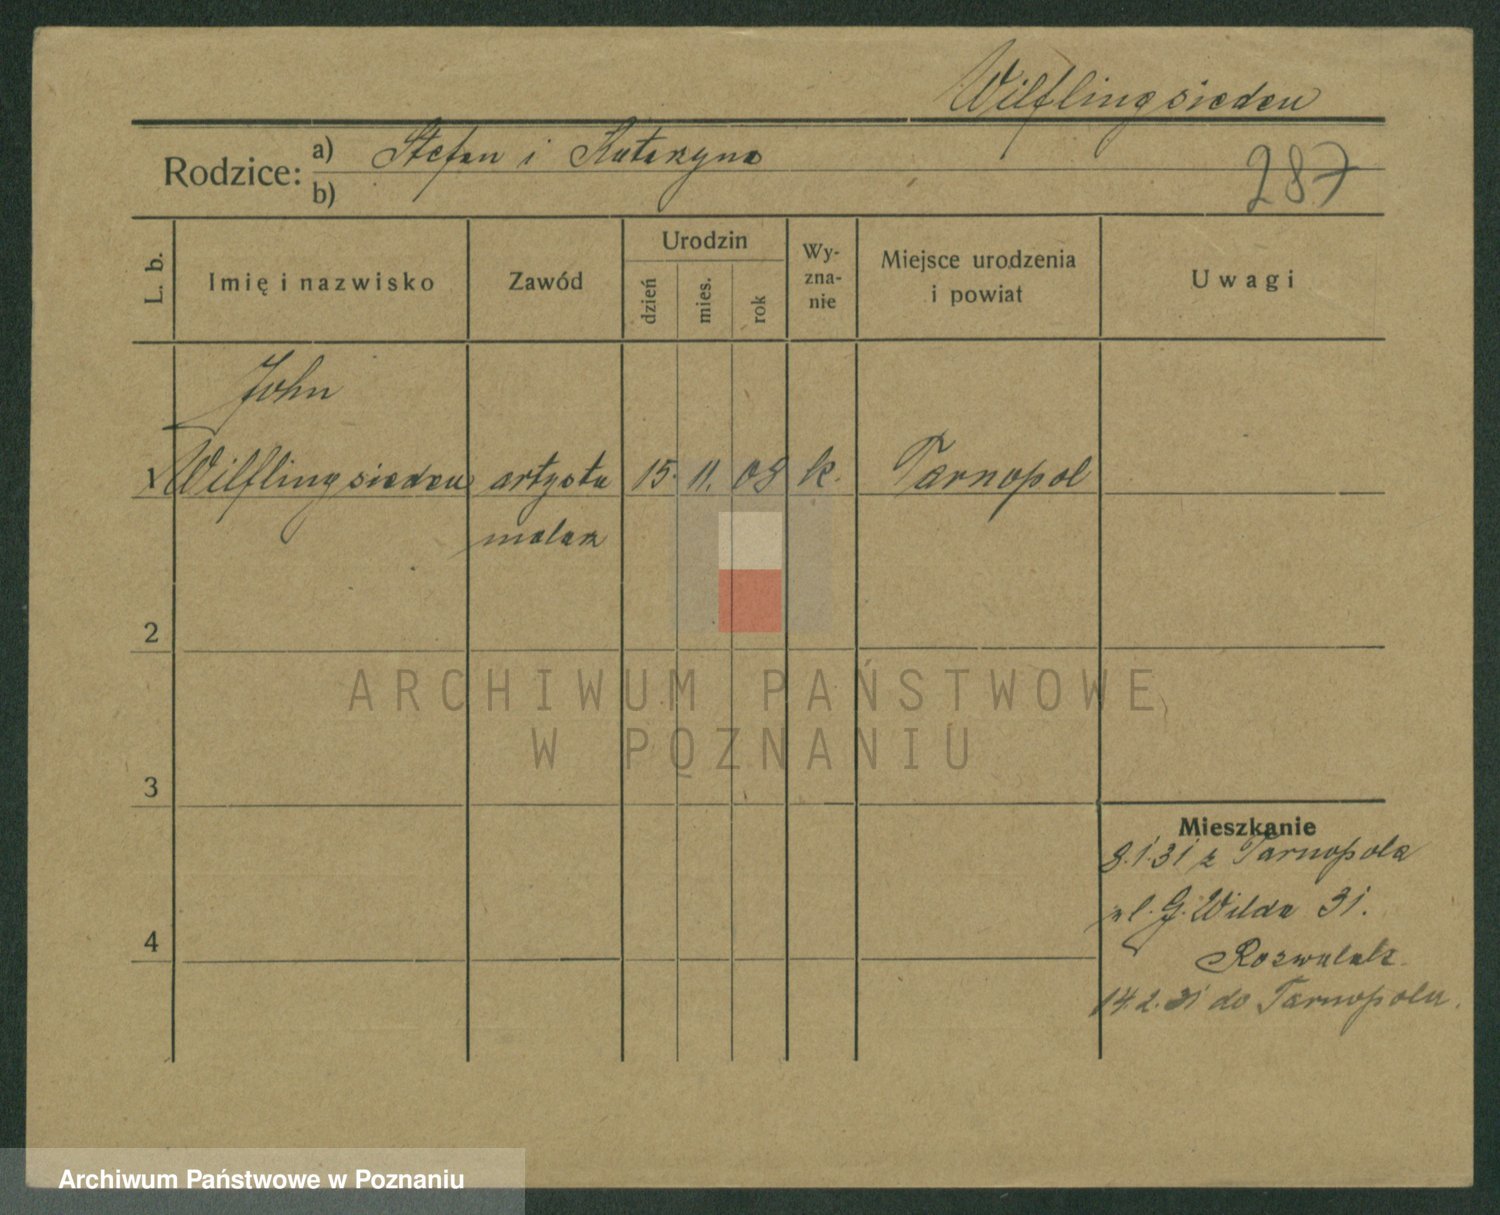 Wilflingsieden
Rodzice: a) Stefan i Katarzyna
b)
287
L. b.
Imię i nazwisko
Zawód
Urodzin
dzień
mies.
rok
Wy-
zna-
nie
Miejsce urodzenia
i powiat
Uwagi
John
1 Wilflingsieden artysta 15. 11. 08 k. Tarnopol
malarz
2
3
4
Mieszkanie
8.1.31 z Tarnopola
ul. G. Wilda 31.
14.2.31 do Tarnopola.
ARCHIWUM PAŃSTWOWE
W POZNANIU
Archiwum Państwowe w Poznaniu